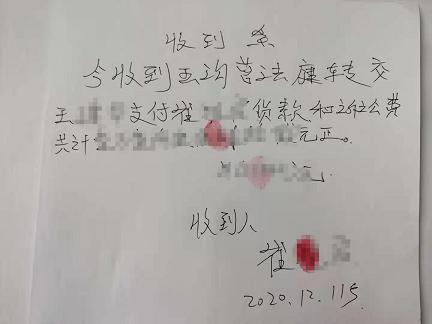 收到条
今收到五沟营法庭转交
王 支付崔 货款和诉讼费
共计 元正。
元
收到人
崔
2020.12.115